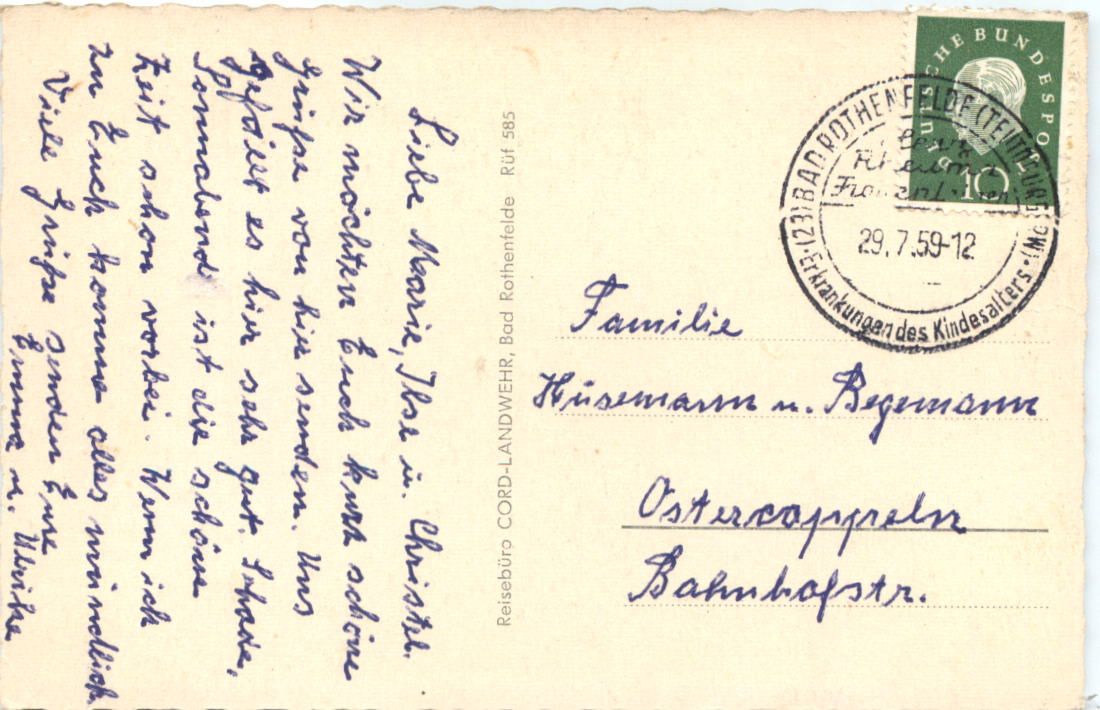 Liebe Marie, Ilse u. Christel.
Wir möchten Euch kurz schöne
Grüße von hier senden. Uns
gefällt es hier sehr gut. Schade,
Sonnabend ist die schöne
Zeit schon vorbei. Wenn ich
zu Euch komme alles mündlich.
Viele Grüße senden Eure
Erna u. Ulrike
Reisebüro CORD-LANDWEHR, Bad Rothenfelde Rüf 585
DEUTSCHE BUNDESPOST
10
(23) BAD ROTHENFELDE (TEUTOBURGER W)
Herz
Rheuma
Frauenleiden
29.7.59-12
Erkrankungen des Kindesalters
Familie
Hüsemann u. Begemann
Ostercappeln
Bahnhofstr.